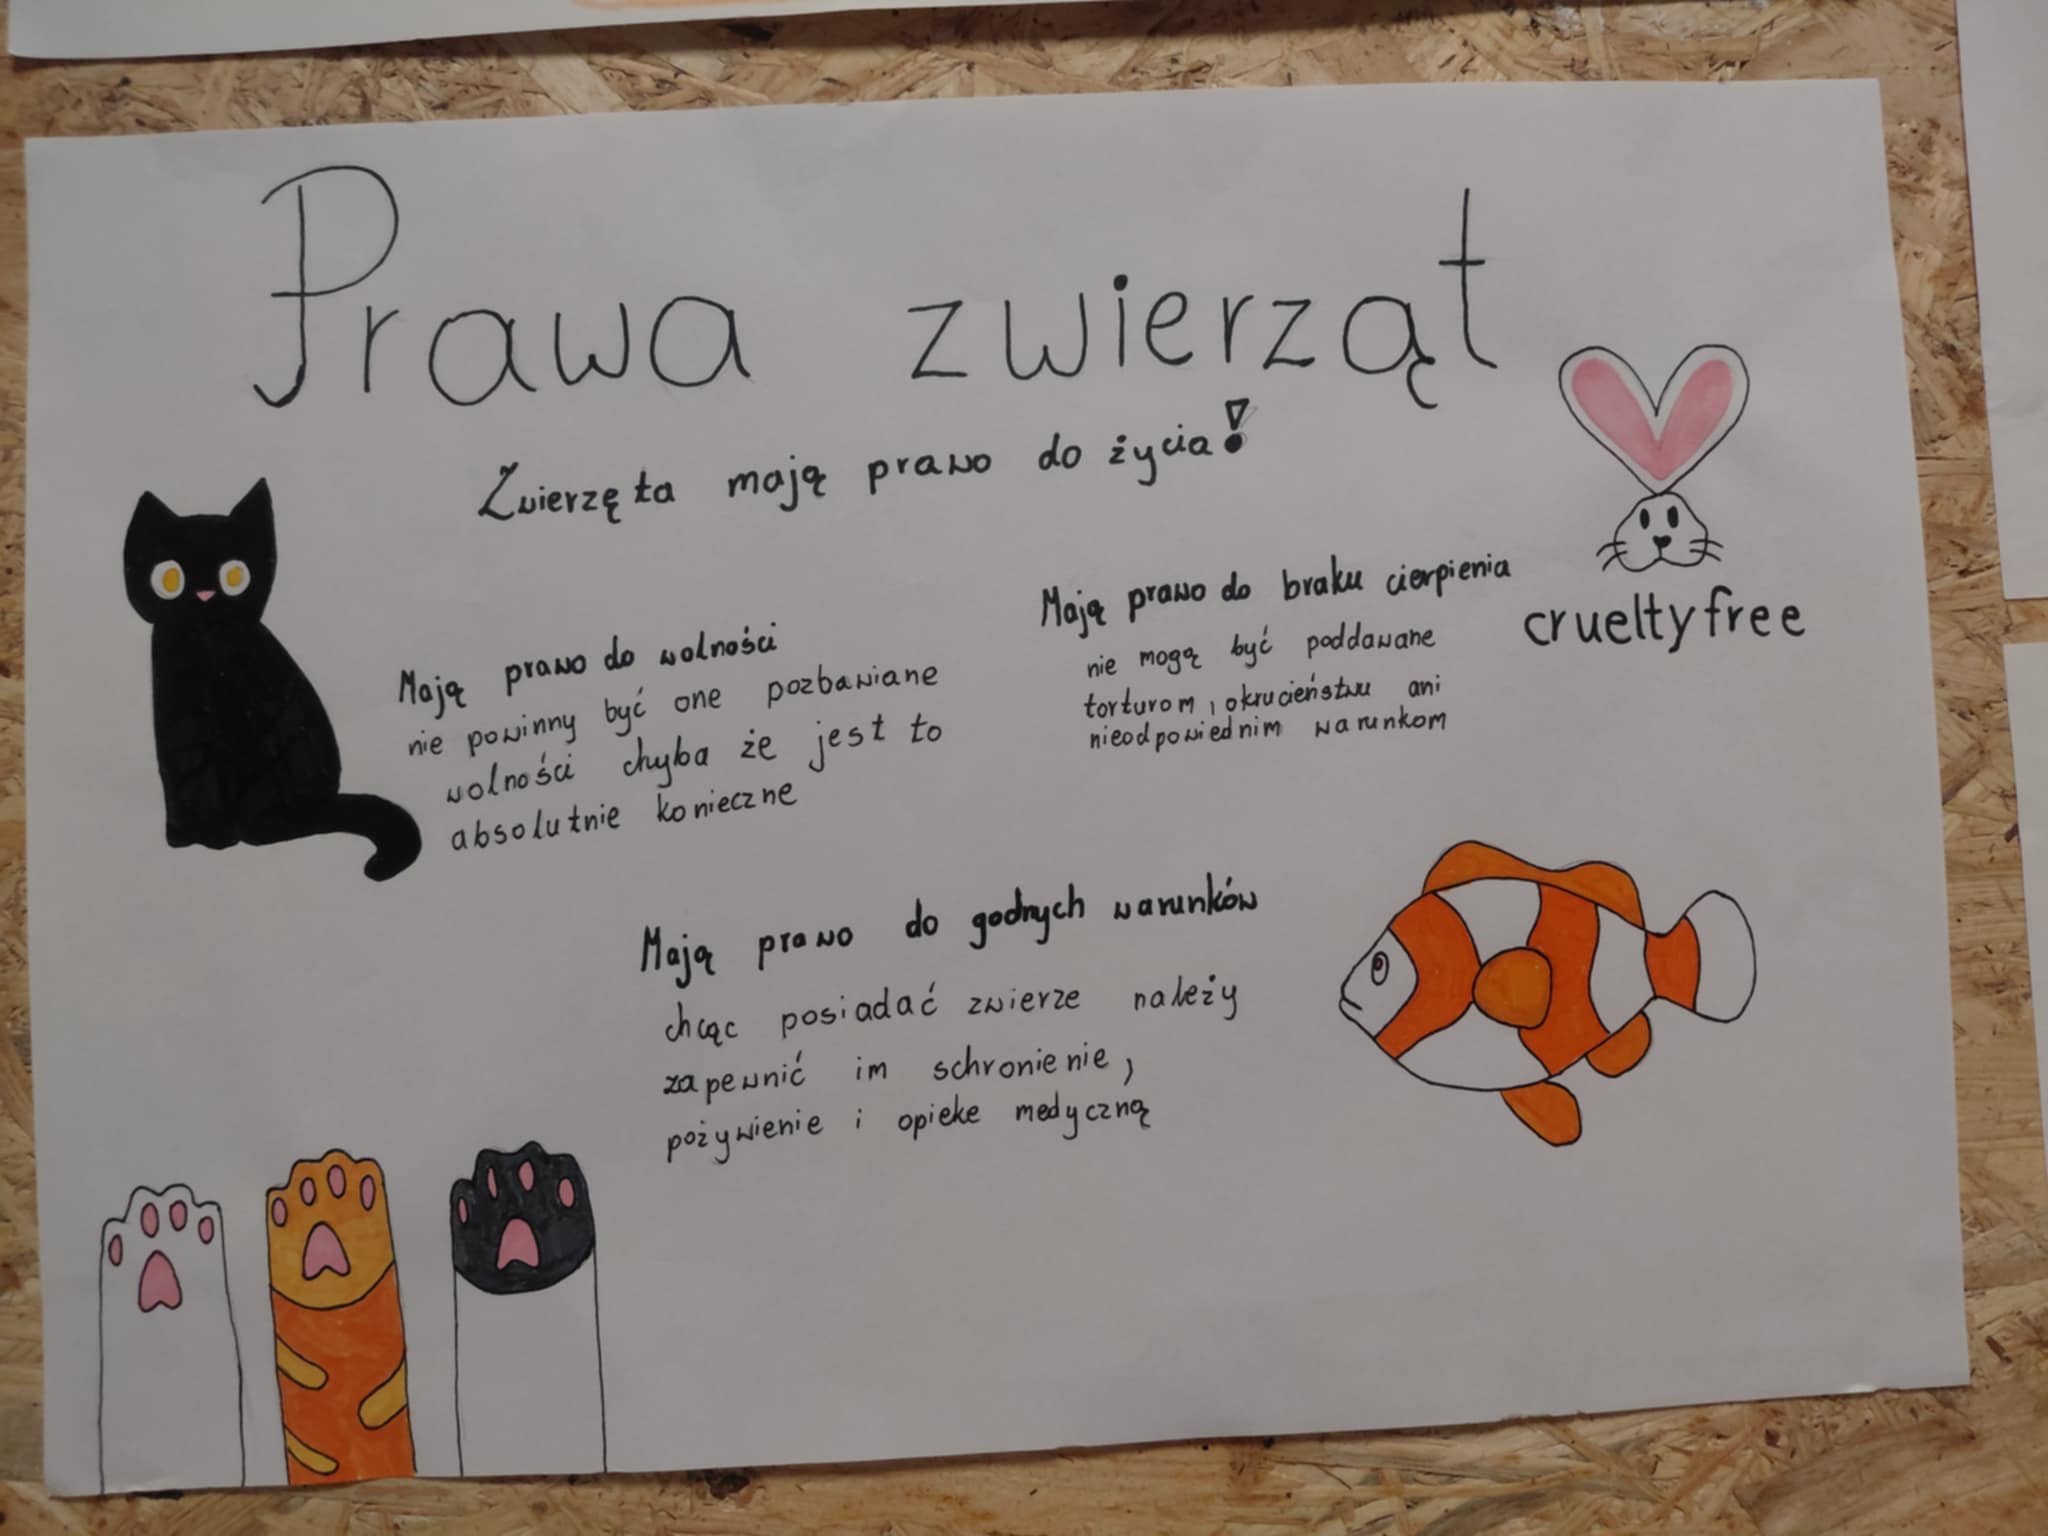 Prawa zwierząt
Zwierzęta mają prawo do życia!
Mają prawo do wolności
nie powinny być one pozbawiane
wolności chyba że jest to
absolutnie konieczne
Mają prawo do braku cierpienia
nie mogą być poddawane
torturom, okrucieństwu ani
nieodpowiednim warunkom
crueltyfree
Mają prawo do godnych warunków
chcąc posiadać zwierze należy
zapewnić im schronienie,
pożywienie i opieke medyczną